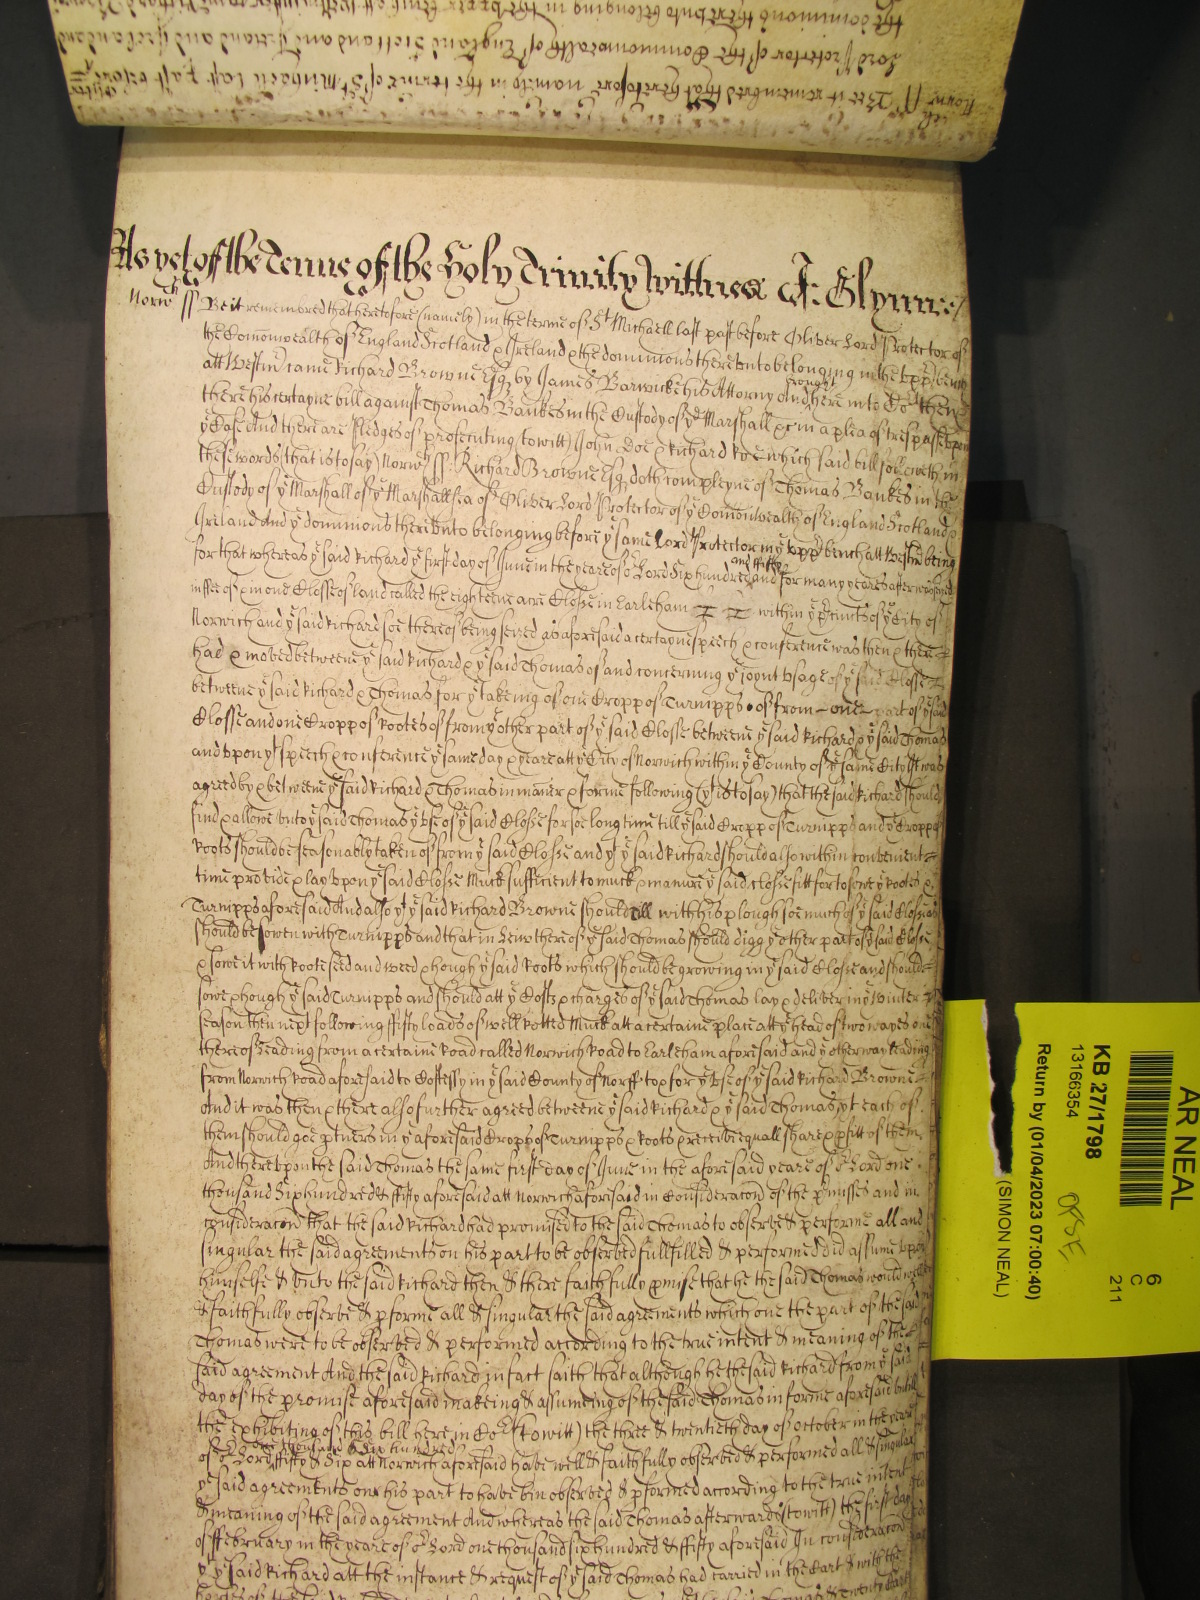 Bee it remembred that heretofore namely in the terme of St Michaell last past before
Lord Protector of the Commonwealth of England Scotland and Ireland and
the dominions thereunto belonging in the upper bench att
As yet of the Terme of the Holy Trinity Wittnes J: Glynne
Norwch ss Be it remembred that heretofore (namely) in the terme of St Michaell last past before Oliver Lord Protector of
the Comonwealth of England Scotland & Ireland & the dominions thereunto belonging in the upp bench
att Westm came Richard Browne Esqz by James Barwicke his Attorny And brought here into Cot then &
there his certayne bill against Thomas Bankes in the Custody of ye Marshall &c in a plea of trespasse upon
ye Case And there are Pledges of prosecuting (to witt) John Doe & Richard Roe which said bill followeth in
these words (that is to say) Norwch ss: Richard Browne Esqz doth compleyne of Thomas Bankes in the
Custody of ye Marshall of ye Marshallsea of Oliver Lord Protector of ye Comonwealth of England Scotland &
Ireland And ye dominions thereunto belonging before ye same Lord Protector in ye upp bench att Westm being
for that whereas ye said Richard ye first day of June in the yeare of or Lord Six hundred and fifty and for many yeares after was seised
in fee of & in one Closse of land called the eighteene acre Closse in Earleham within ye Precincts of ye City of
Norwich and ye said Richard soe thereof being seized as aforesaid a certayne speech & conference was then & there
had & moved betweene ye said Richard & ye said Thomas of and concerning ye joynt usage of ye said Closse
betweene ye said Richard & Thomas for ye takeing of one Cropp of Turnipps of from one part of ye said
Closse and one Cropp of Rootes of from ye other part of ye said Closse betweene ye said Richard & ye said Thomas
and upon yt speech & conference ye same day & yeare att ye City of Norwich within ye County of ye same City It was
agreed by & betweene ye said Richard & Thomas in maner & forme following (yt is to say) that the said Richard should
find & allowe unto ye said Thomas ye use of ye said Closse for soe long time till ye said Cropp of Turnipps and ye Cropp of
Roots should be seasonably taken of from ye said Closse and yt ye said Richard should also within convenient
time provide & lay upon ye said Closse Muck sufficient to muck & manure ye said closse fitt for to sowe ye Rootes &
Turnipps aforesaid And also yt ye said Richard Browne should till with his plough soe much of ye said Closse as
should be sowen with Turnipps and that in Leiw thereof ye said Thomas should digg ye other part of ye said Closse
& sowe it with Roote seed and weed & hough ye said Roots which should be growing in ye said Closse and should
sowe & hough ye said Turnipps and should att ye Costs & charges of ye said Thomas lay & deliver in ye Winter
season then next following fifty loads of well rotted Muck att a certaine place att ye head of two wayes one
thereof leading from a certaine Road called Norwich Road to Earleham aforesaid and ye other way leading
from Norwich Road aforesaid to Costessy in ye said County of Norff to & for ye use of ye said Richard Browne
And it was then & there also further agreed betweene ye said Richard & ye said Thomas yt each of
them should goe ptners in ye aforesaid Cropp of Turnipps & Roots & receive equall share & pfitt of them
And thereupon the said Thomas the same first day of June in the aforesaid yeare of or Lord one
thousand Six hundred & fifty aforesaid att Norwich aforesaid in Consideracon of the pmisses and in
consideracon that the said Richard had promised to the said Thomas to observe & performe all and
singular the said agreements on his part to be observed fullfilled & performed did assume upon
himselfe & unto the said Richard then & there faithfully pmise that he the said Thomas would well
& faithfully observe & pforme all & singular the said agreements which one the part of the said
Thomas were to be observed & performed according to the true intent & meaning of the
said agreement And the said Richard in fact saith that although he the said Richard from ye said
day of the promise aforesaid makeing & assumeing of the said Thomas in forme aforesaid untill
the exhibiting of this bill here in Cort (to witt) the three & twentieth day of October in the yeare
of or Lord one thousand & six hundred fifty & Six att Norwich aforesaid have well & faithfully observed & performed all & singular
ye said agreements on his part to have bin observed & pformed according to the true intent
& meaning of the said agreement And whereas the said Thomas afterwards (to witt) the first day
of February in the yeare of or Lord one thousand six hundred & fifty aforesaid In consideracon
yt ye said Richard att the instance & request of ye said Thomas had carried in the Cart & with the
AR NEAL
6
C
211
KB 27/1798
13166354
Return by (01/04/2023 07:00:40)
(SIMON NEAL)